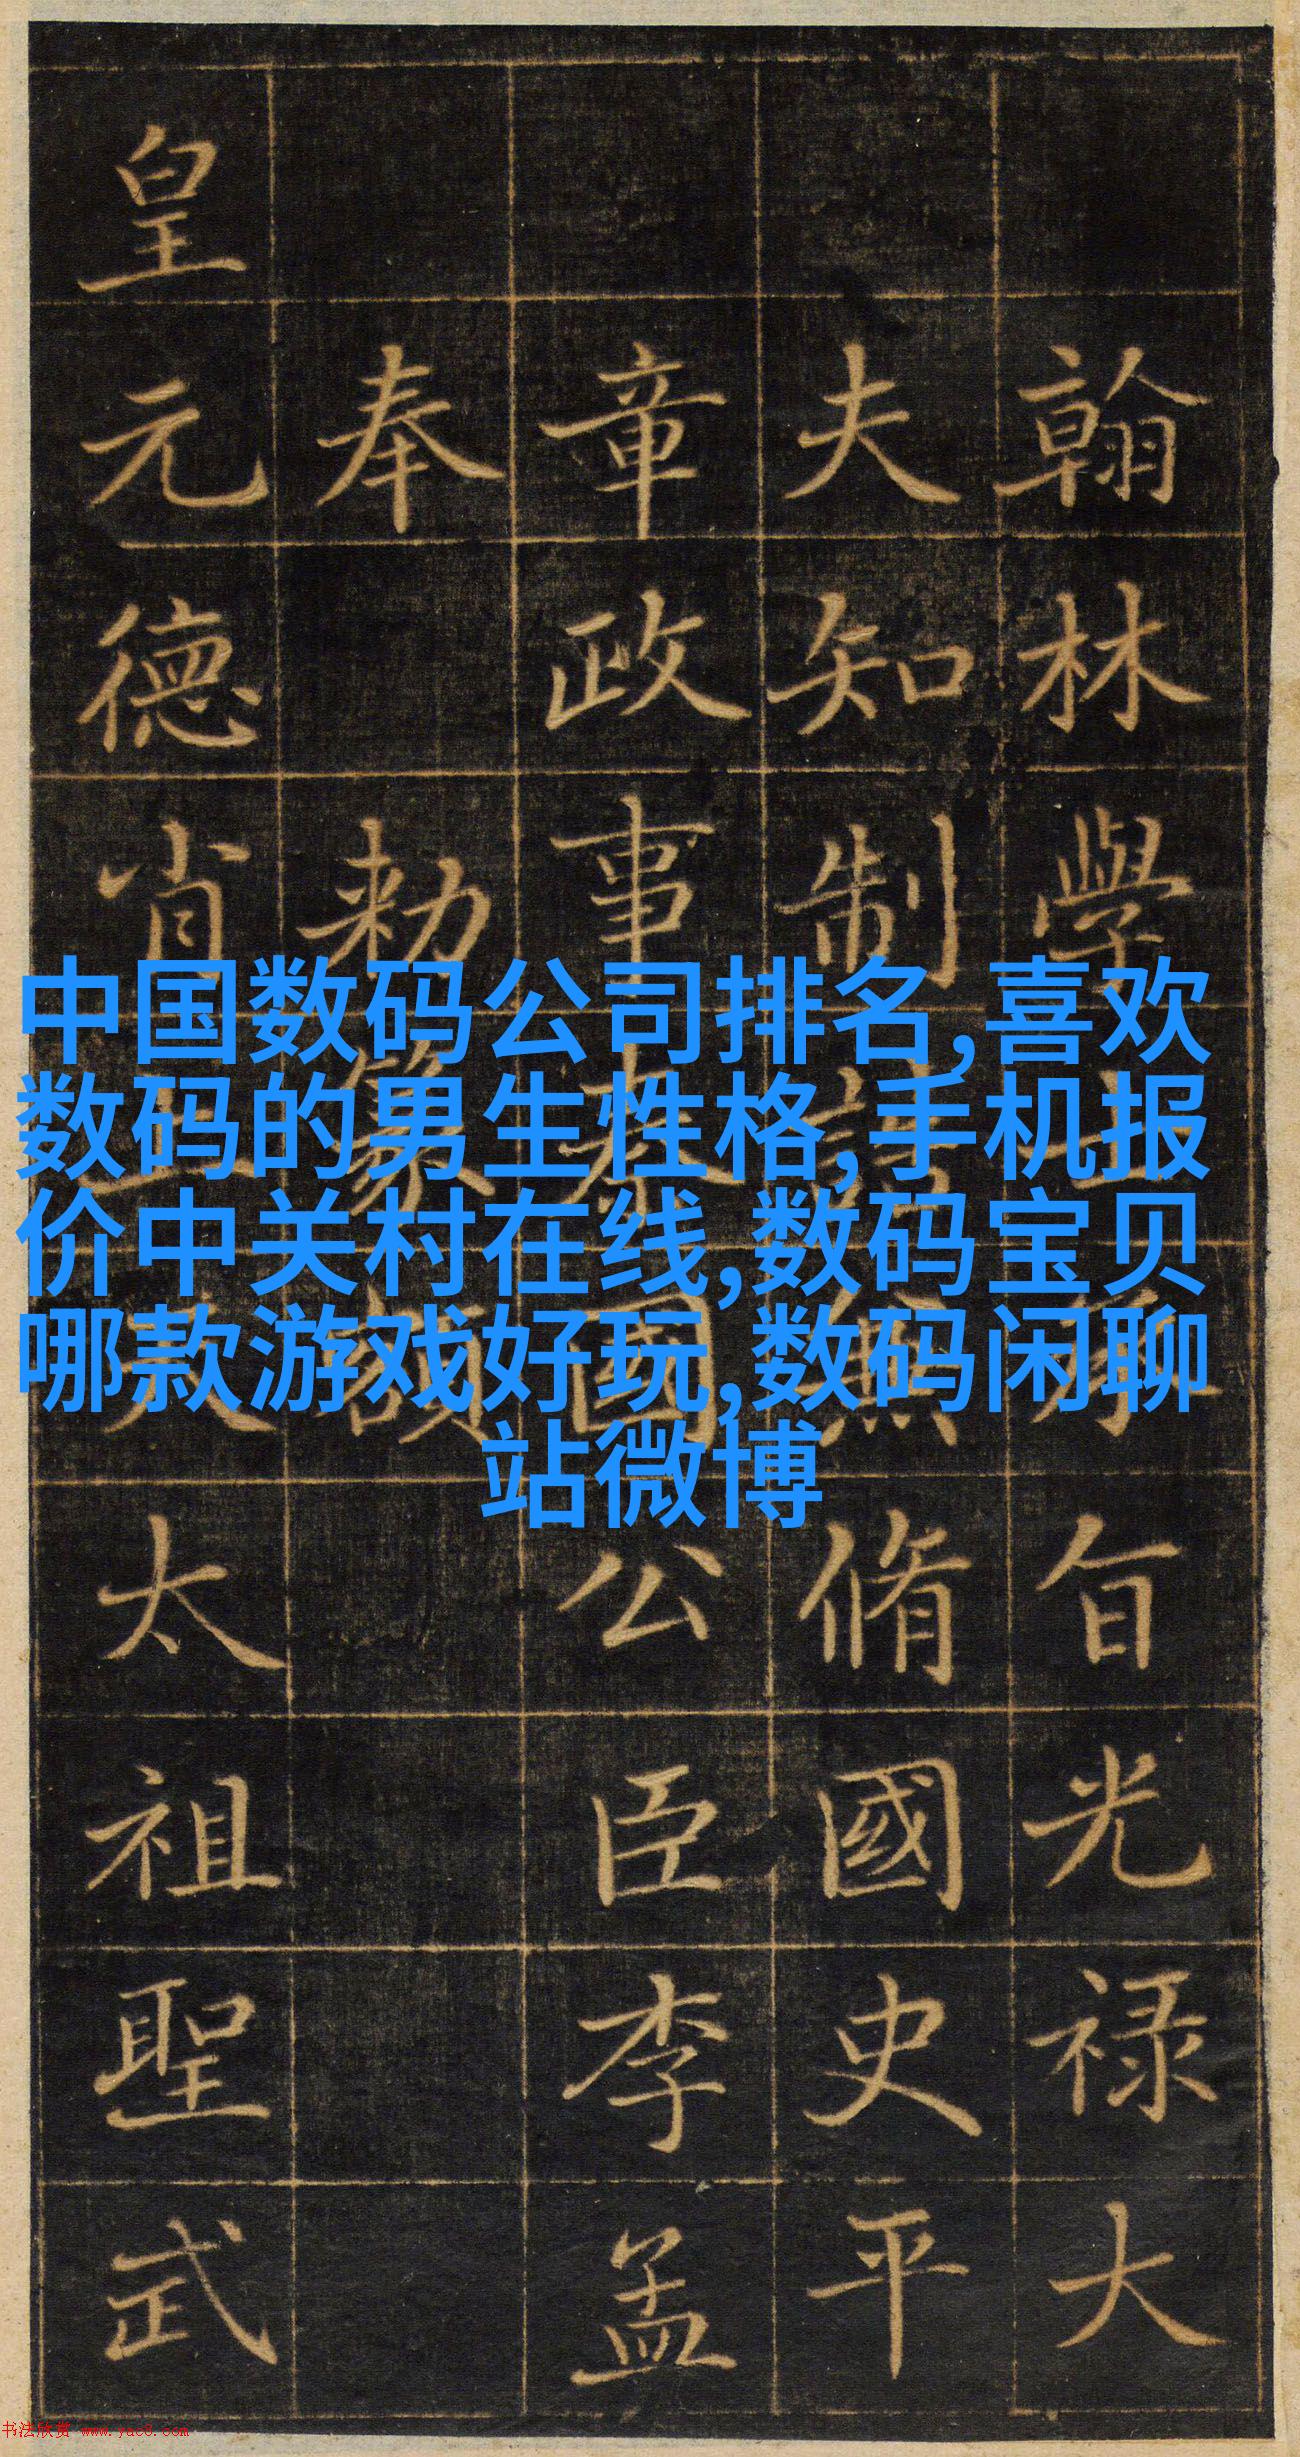 翰林學士承旨光禄大
夫知制誥兼脩國史平
章政事秦國公臣李孟
奉勅篆額
皇元德肖上天太祖聖武
中国数码公司排名,喜欢
数码的男生性格,手机报
价中关村在线,数码宝贝
哪款游戏好玩,数码闲聊
站微博
书法欣赏 www.yac8.com